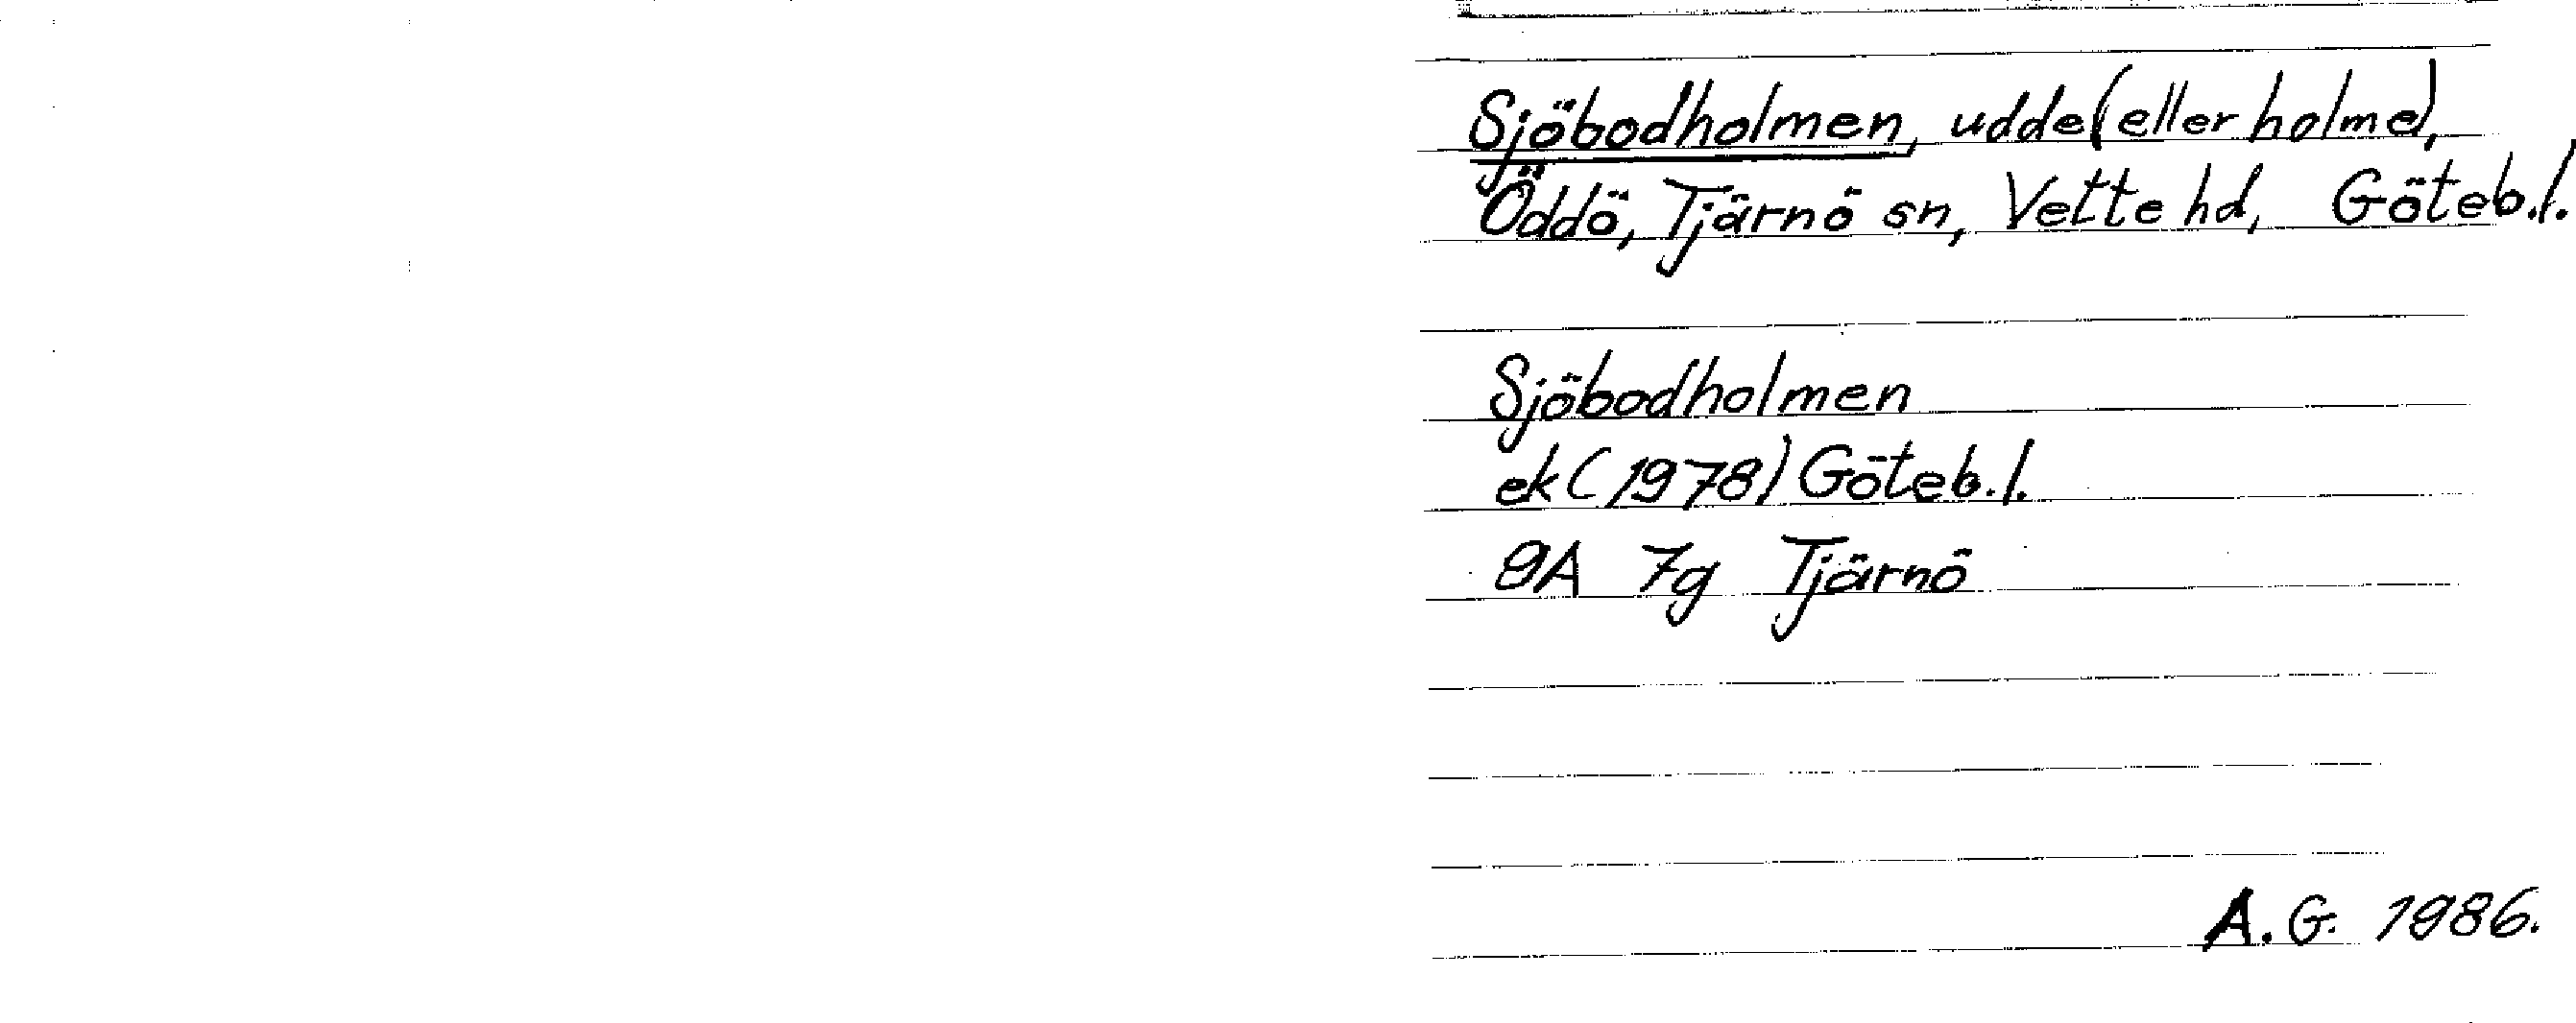 Sjöbodholmen, udde (eller holme),
Öddö, Tjärnö sn, Vette hd, Göteb.l.
Sjöbodholmen
ek (1978) Göteb.l.
9A 7g Tjärnö
A.G. 1986.